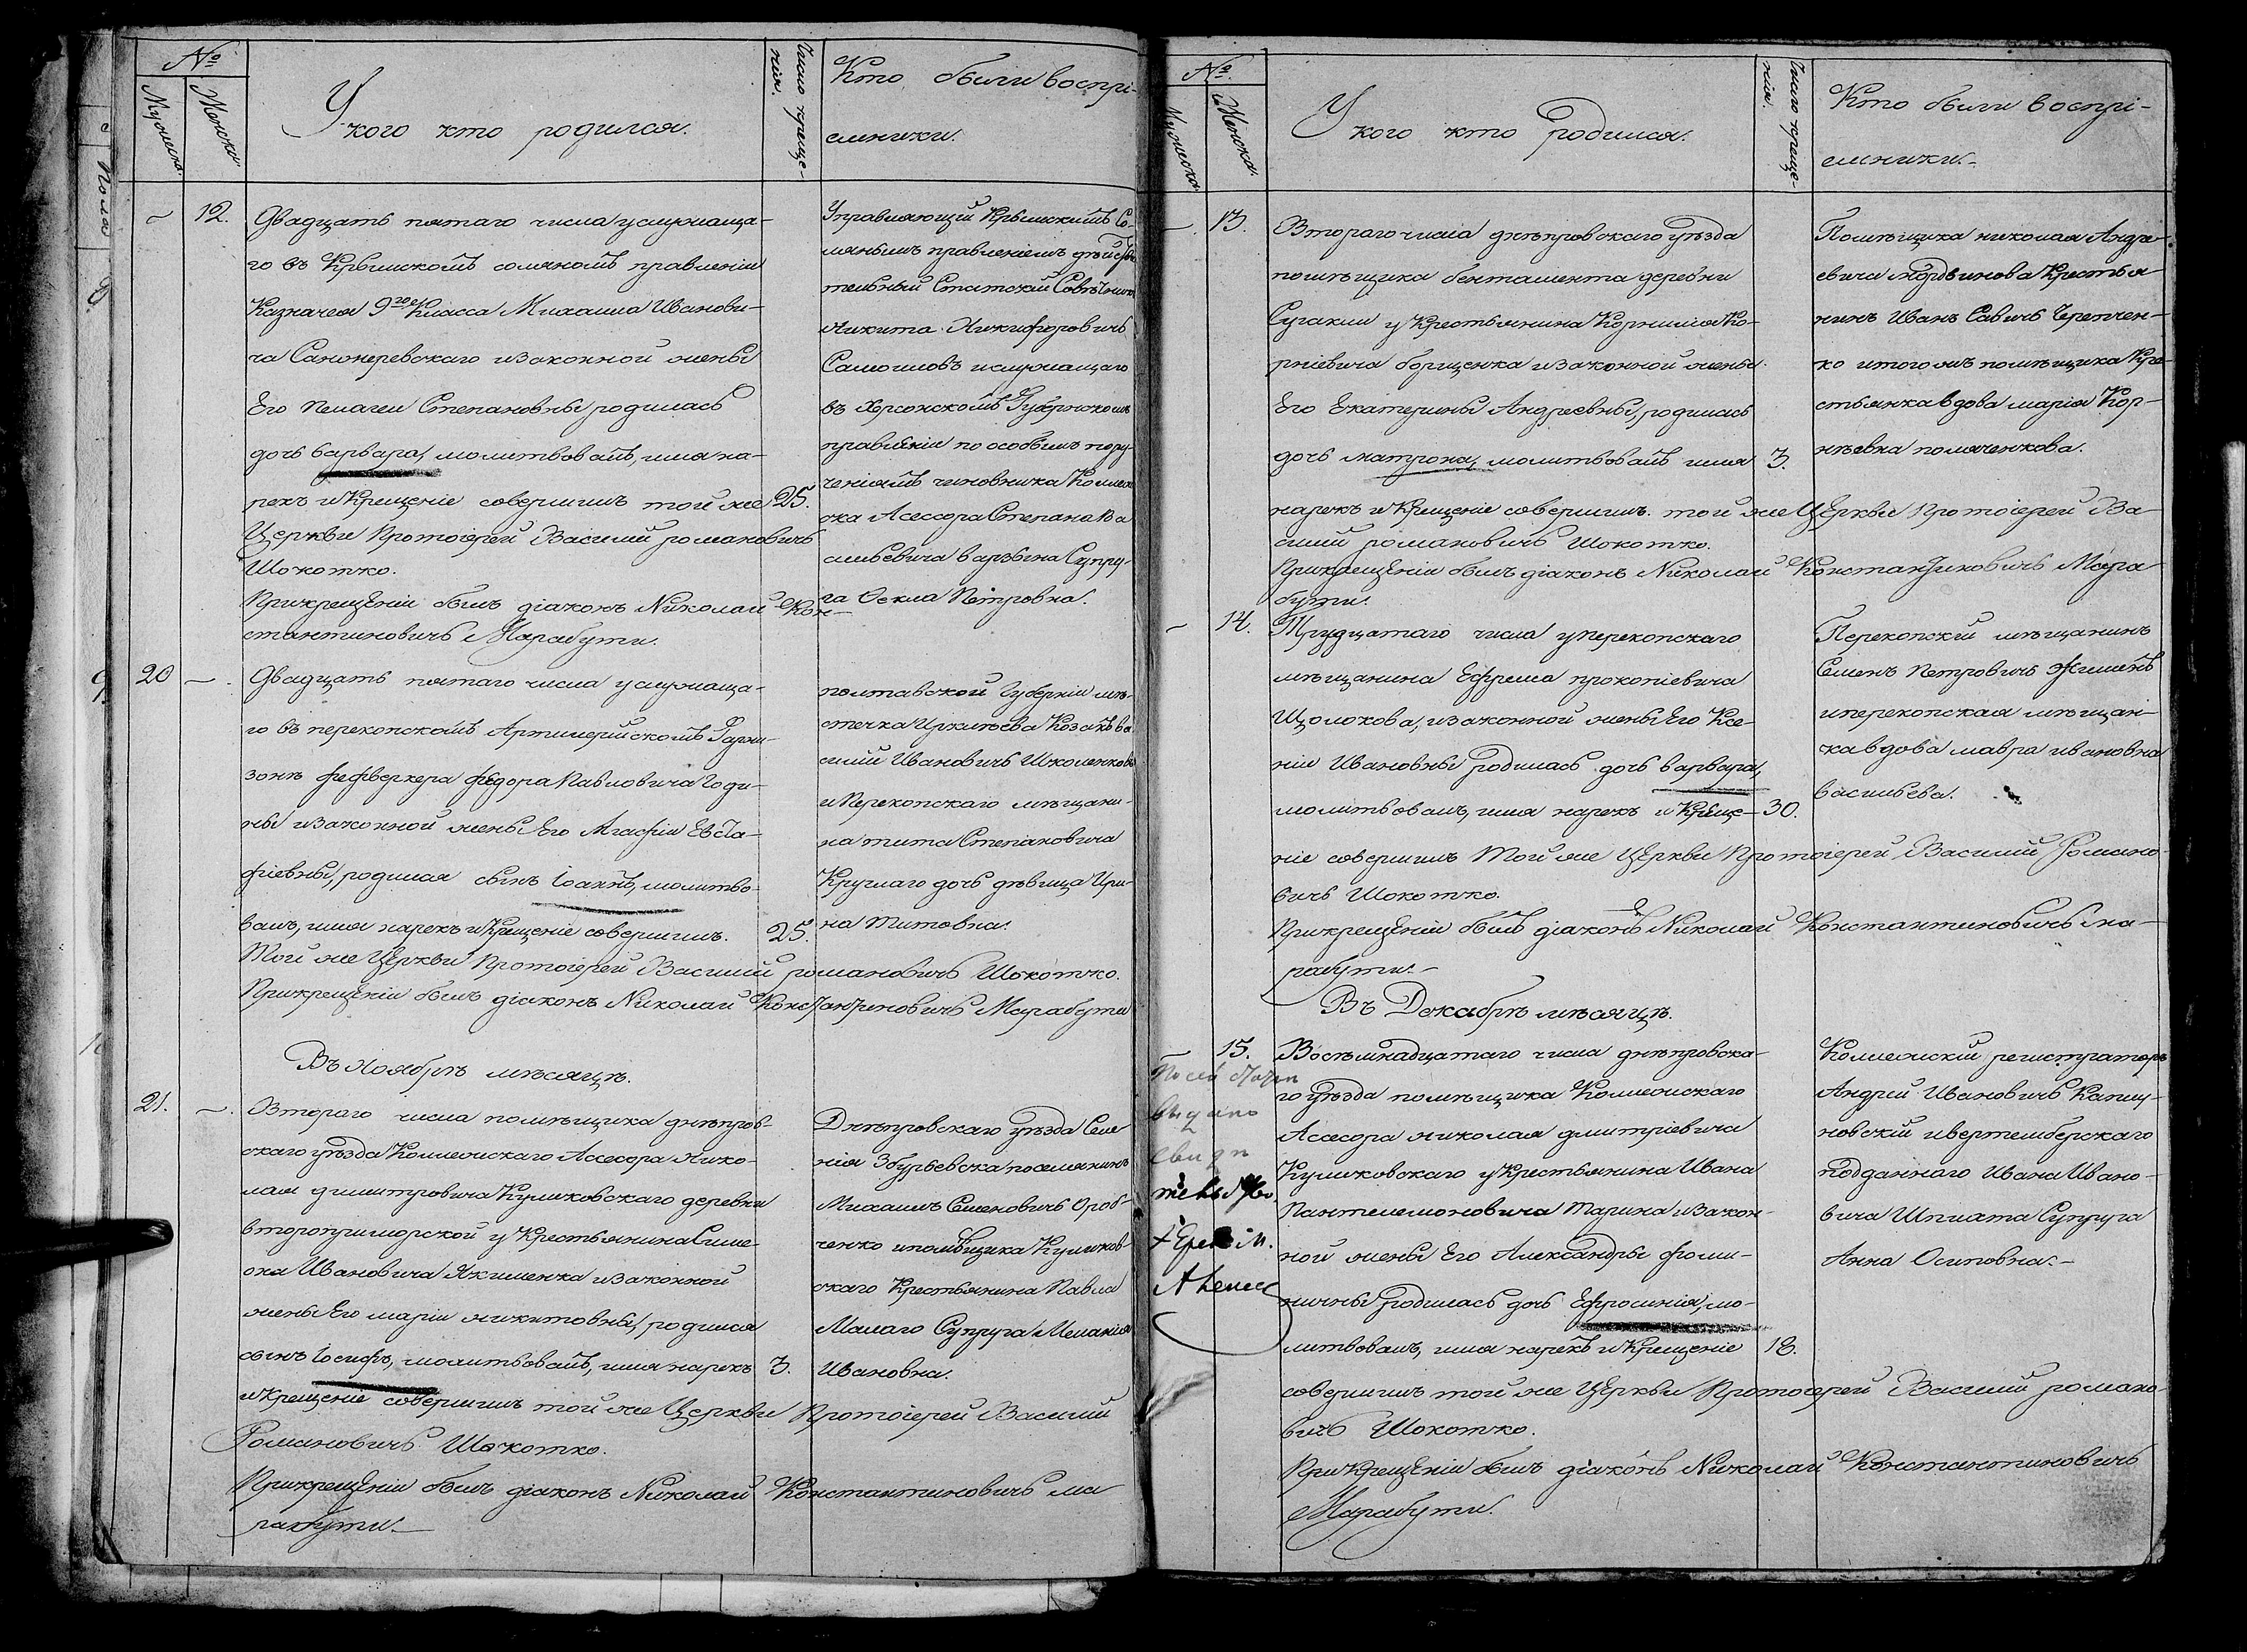 №
Мужеска.
Женска.
У кого кто родился.
Число креще-
нія.
Кто были воспрі-
емники.
12.
Двадцать пятаго числа услужаща-
го въ Крымскомъ соляномъ правленіи
Казначея 9го Класса Михаила Иванови-
ча изаконной жены
Его Пелагеи Степановны родилась
дочь варвара, молитвовалъ, имя на-
рекъ и Крещеніе совершилъ той же 25.
Церкви Протоіерей Василий романовичъ
Шокотко.
Прикрещеніи былъ діаконъ Николай Кон-
стантиновичъ Марабути.
Управляющій Крымскимъ Со-
лянымъ правленіемъ дѣйств
тельный Статской Совѣтник
Никита Никифоровичъ
Самойловъ ислужащаго
въ Херсонскомъ Губернскомъ
правленіи по особымъ пору-
ченіямъ чиновника Коллеж
ска Асессора Степана Ва
сильевича Супру-
га Фекла Петровна.
20
Двадцать пятаго числа услужаща-
го въ перекопскомъ Артилерійскомъ Гарни-
зонѣ фейферкера федора Павловича Годи-
ны изаконной жены Его Агафіи Евста-
фіевны, родился сынъ Іоаннъ, молитво-
валъ, имя нарекъ и Крещеніе совершилъ. 25.
Той же Церкви Протоіерей Василий романовичъ Шокотко.
Прикрещеніи былъ діаконъ Николай Константиновичъ Марабути
полтавской Губерніи мѣ-
стечка Ирклѣева Козакъ ва
силий Ивановичъ Школенковъ
иПерекопскаго мѣщани-
на тита Степановича
Круглаго дочь дѣвица Ири-
на Титовна.
Въ Ноябрѣ мѣсяцѣ.
21.
Втораго числа помѣщика днѣпров-
скаго уѣзда Коллежскаго Асесора Нико-
лая дмитровича Куликовскаго деревни
второприморской у Крестьянина Симе-
она Ивановича Якименка изаконной
жены Его маріи никитовны, родился
сынъ Іосифъ, молитвовалъ, имя нарекъ 3.
иКрещеніе совершилъ той же Церкви Протоіерей Василий
Романовичъ Шокотко.
Прикрещеніи былъ діаконъ Николай Константиновичъ ма
рабути.
Днѣпровскаго уѣзда Селе
нія Збурьевска поселянинъ
Михаилъ Семеновичъ Ороб-
ченко ипомѣщика Куликов-
скаго Крестьянина Павла
Малаго Супруга Меланія
Ивановна.
№
Мужеска.
Женска.
У кого кто родился.
Число креще-
нія.
Кто были воспрі-
емники.
13.
Втораго числа днѣпровскаго уѣзда
помѣщика бентамента деревни
Сугакли у Крестьянина Корнилія Ко-
рніевича борщенка изаконной жены
Его Екатерины Андреевны, родилась
дочь матрона, молитвовалъ имя 3.
нарекъ и Крещеніе совершилъ. той же Церкви Протоіерей Ва-
силий романовичъ Шокотко.
Прикрещеніи былъ діаконъ Николай Константиновичъ Мара
бути.
Помѣщика николая Андре-
евича мордвинова Крестья
нинъ Иванъ Савичъ Черепчен-
ко итогожъ помѣщика Кре-
стьянка вдова марія Кор-
нѣевна поляченкова.
14.
Тридцатаго числа уперекопскаго
мѣщанина Ефрема прокопіевича
Щолокова, изаконной жены Его Ксе-
ніи Ивановны родилась дочь варвара,
молитвовалъ, имя нарекъ и Креще- 30.
ніе совершилъ Той же Церкви Протоіерей Василий Романо-
вичъ Шокотко.
Прикрещеніи былъ діаконъ Николай Константиновичъ ма-
рабути.
Перекопскій мѣщанинъ
Семенъ Петровичъ
иперекопская мѣщан-
ка вдова мавра ивановна
васильева.
Въ Декабрѣ мѣсяцѣ.
15.
Восемнадцатаго числа днѣпровска-
го уѣзда помѣщика Коллежскаго
Асесора николая дмитріевича
Куликовскаго у Крестьянина Ивана
Пантелемоновича Тарина изакон-
ной жены Его Александры фоми-
ничны родилась дочь Ефросинія, мо-
литвовалъ, имя нарекъ и Крещеніе 18.
совершилъ той же Церкви Протоіерей Василий романо-
вичъ Шокотко.
Прикрещеніи былъ діаконъ Николай Константиновичъ
Марабути.
Коллежскій регистраторъ
Андрей Ивановичъ Капиц-
новскій ивертембергскаго
подданнаго Ивана Ивано-
вича Шпилта Супруга
Анна Осиповна.